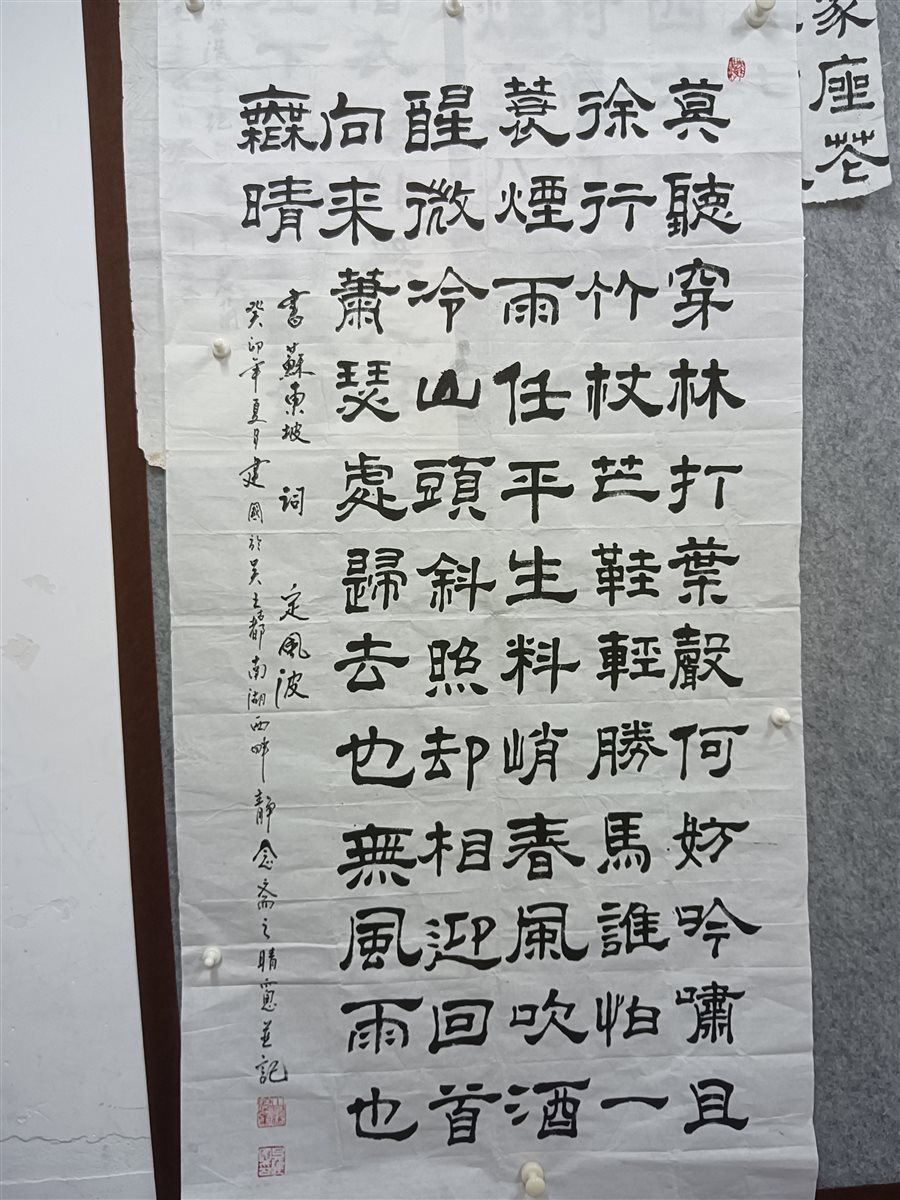 莫聽穿林打葉聲何妨吟嘯且
徐行竹杖芒鞋輕勝馬誰怕一
蓑煙雨任平生料峭春風吹酒
醒微冷山頭斜照却相迎回首
向来蕭瑟處歸去也無風雨也
無晴
書蘇東坡 詞 定風波
癸卯年夏月建國於吴古都南湖西畔静念斋之晴窗並記
座